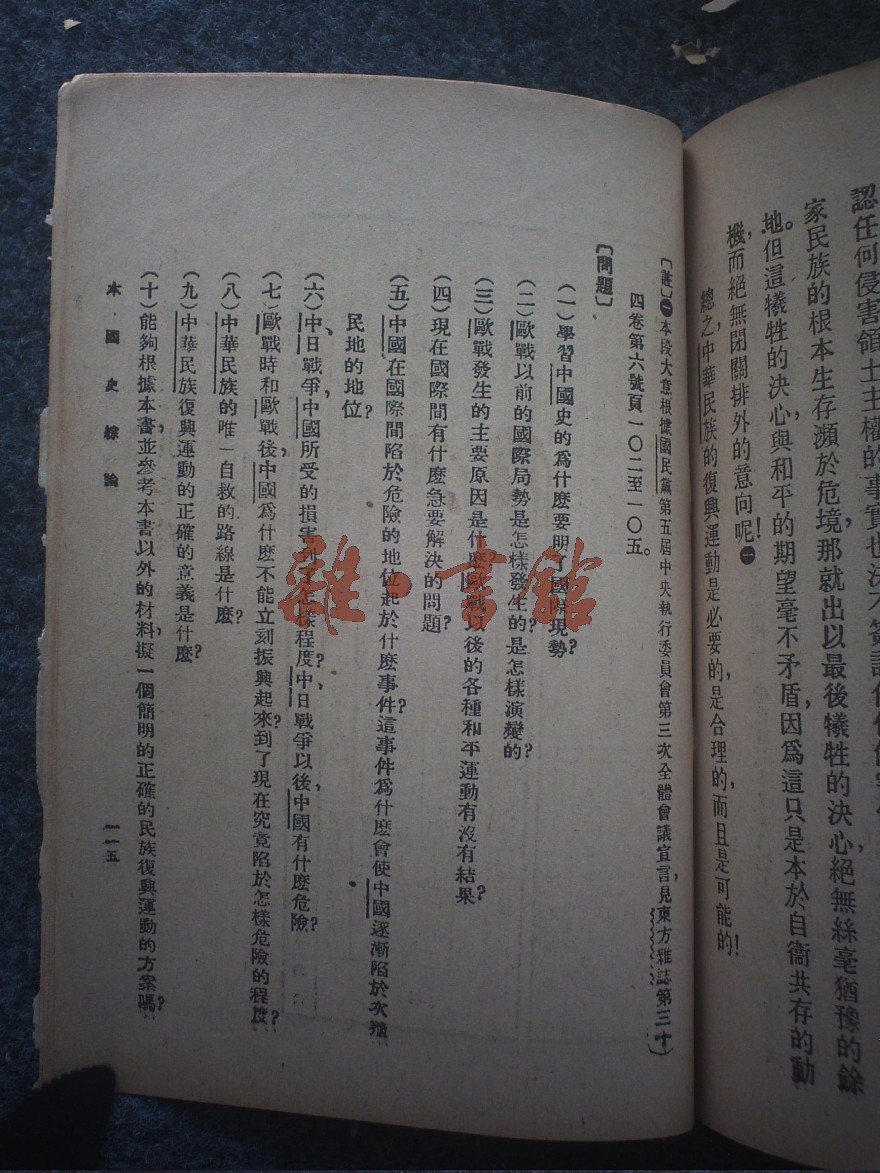 認任何侵害領土主權的事實也決不簽訂任何
家民族的根本生存瀕於危境,那就出以最後犧牲的決心,絕無絲毫猶豫的餘
地。但這犧牲的決心,與和平的期望毫不矛盾,因爲這只是本於自衞共存的動
機,而絕無閉關排外的意向呢!㊀
總之,中華民族的復興運動是必要的,是合理的,而且是可能的!
〔註〕㊀本段大意根據國民黨第五屆中央執行委員會第三次全體會議宣言,見東方雜誌第三十
四卷第六號頁一〇二至一〇五。
〔問題〕
(一)學習中國史的爲什麽要明了國際現勢?
(二)歐戰以前的國際局勢是怎樣發生的?是怎樣演變的?
(三)歐戰發生的主要原因是什麽?歐戰以後的各種和平運動有沒有結果?
(四)現在國際間有什麽急要解決的問題?
(五)中國在國際間陷於危險的地位起於什麽事件?這事件爲什麽會使中國逐漸陷於次殖
民地的地位?
(六)中、日戰爭,中國所受的損害到了怎樣程度?中、日戰爭以後,中國有什麽危險?
(七)歐戰時和歐戰後,中國爲什麽不能立刻振興起來?到了現在究竟陷於怎樣危險的程度?
(八)中華民族的唯一自救的路線是什麽?
(九)中華民族復興運動的正確的意義是什麽?
(十)能夠根據本書,並參考本書以外的材料,擬一個簡明的正確的民族復興運動的方案嗎?
本國史綜論
一一五
雜·書館